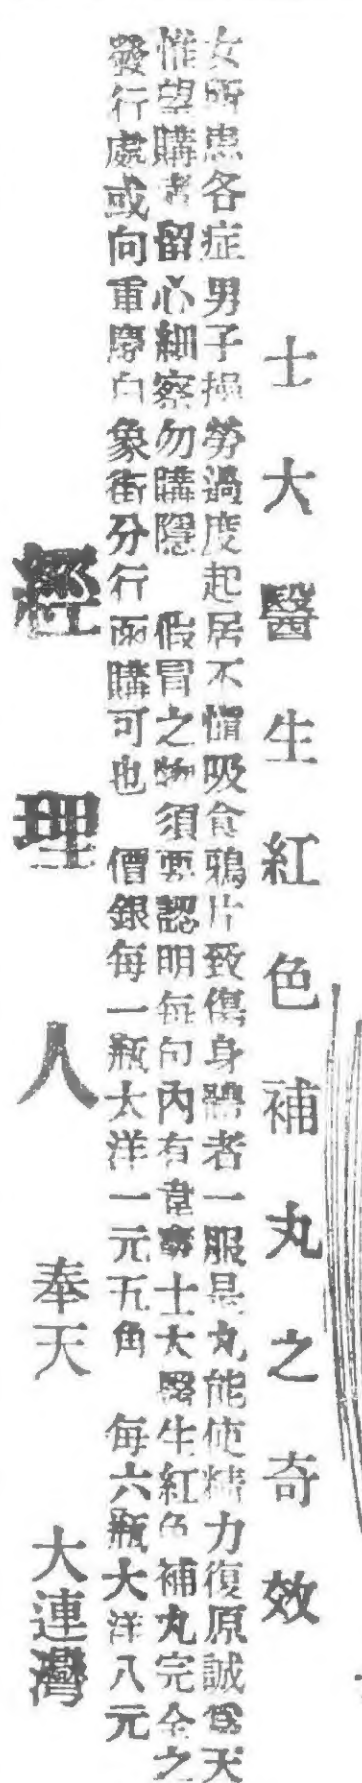 士大醫生紅色補丸之奇效
女所患各症男子操勞過度起居不慎吸食鴉片致傷身體者一服是丸能使精力復原誠為天
惟望購者留心細察勿購隱 假冒之物須要認明每句內有韋廉士大醫生紅色補丸完全之
發行處或向重慶白象街分行函購可也 價銀每一瓶大洋一元五角 每六瓶大洋八元
經理人 奉天 大連灣